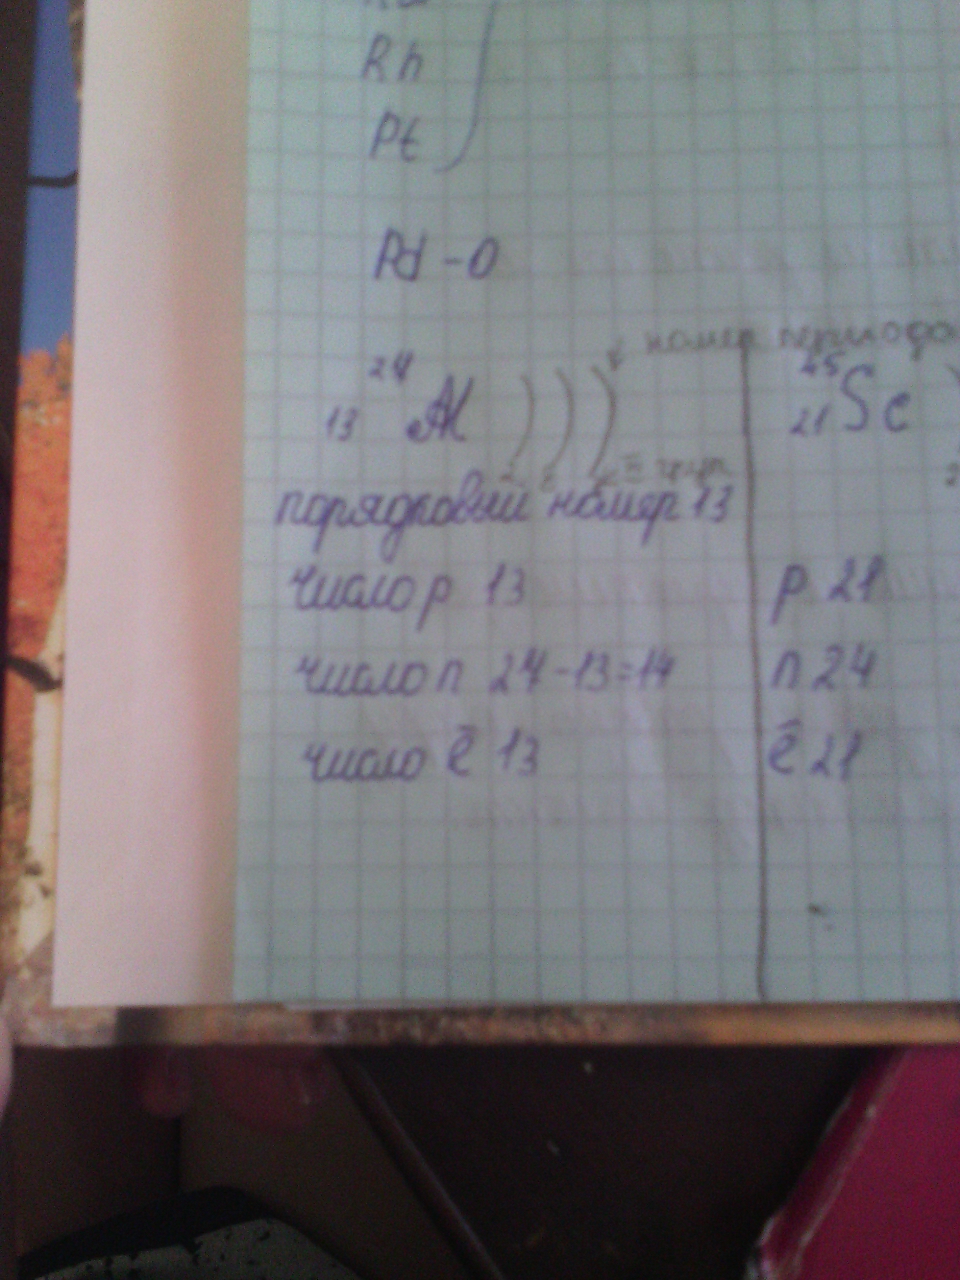 Rh
Pt
Pd - 0
номер периода
24
13 Al
45
21 Sc
2 8
порядковый номер 13
число p 13
p 21
число n 24 - 13 = 14
n 24
число ē 13
ē 21